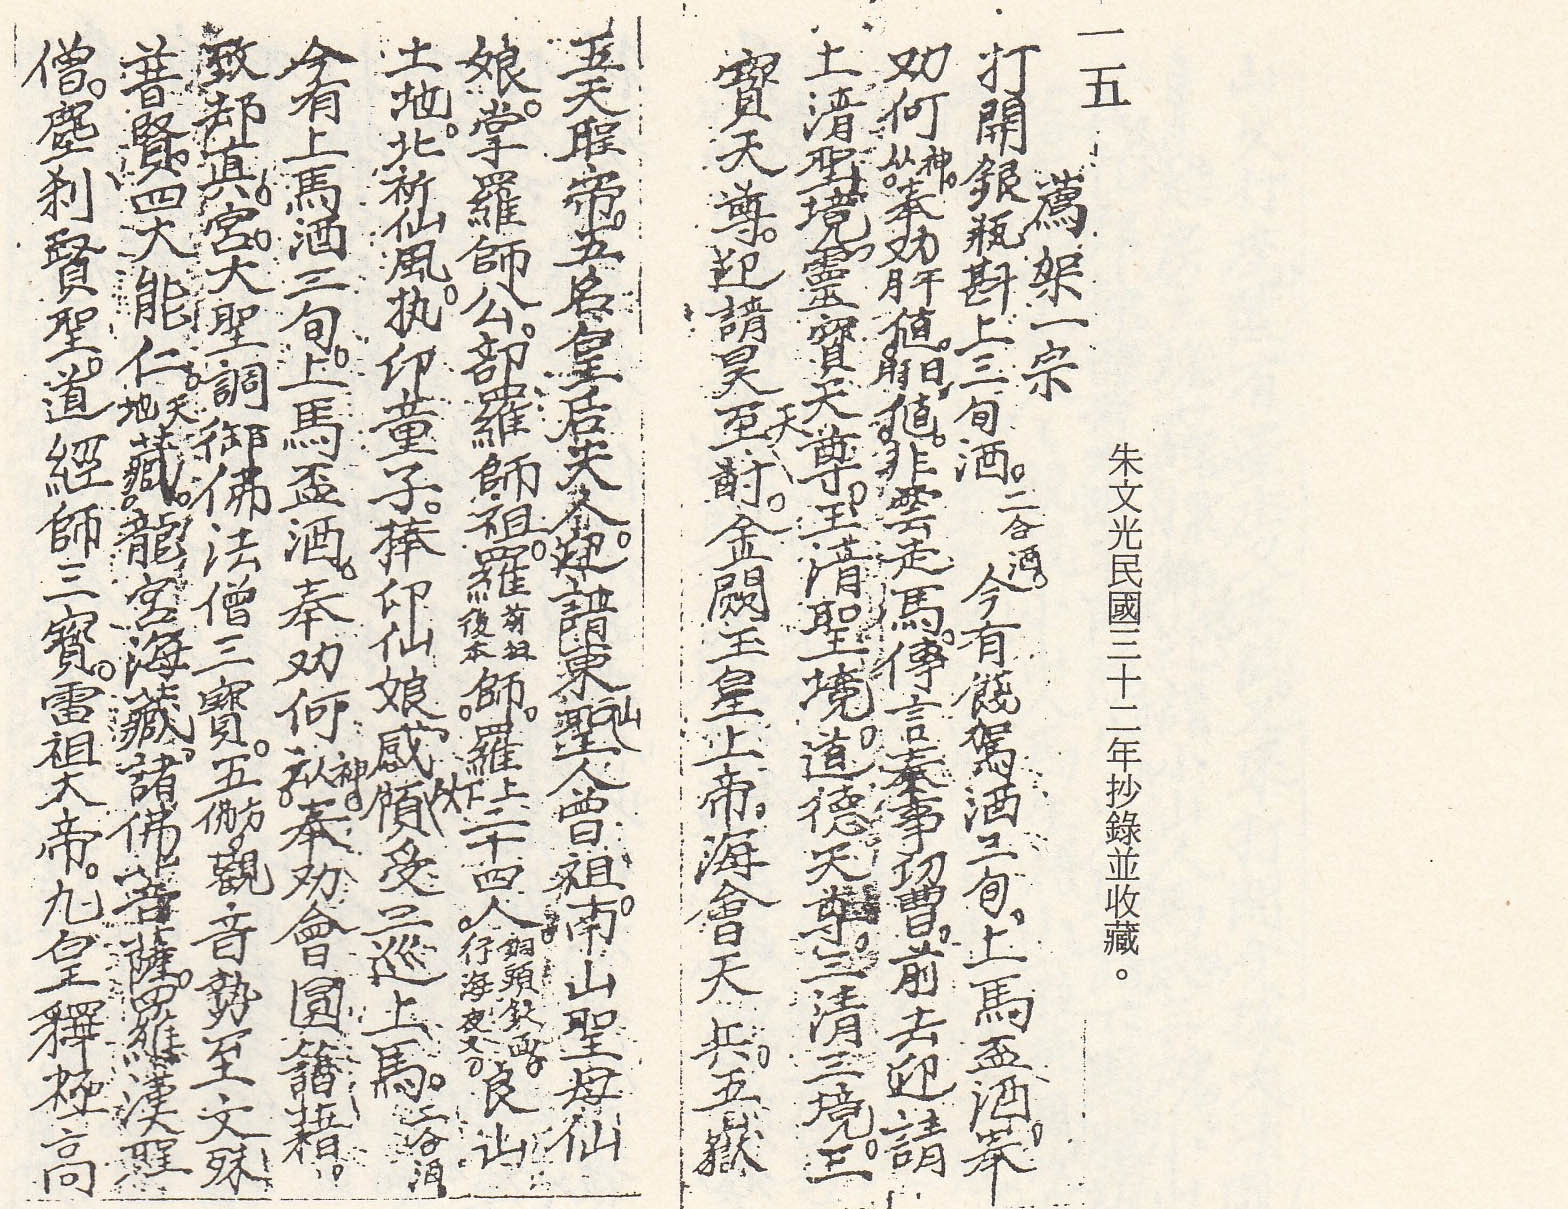 一五
薦架一宗
朱文光民國三十二年抄錄並收藏。
打開銀瓶斟上三旬酒。二合酒。今有餞駕酒二旬，上馬盃酒。奉
劝何神。从。奉劝肝值。日時值。非雲走馬。傳言奏事功曹。前去迎請
上清聖境靈寶天尊。玉清聖境。道德天尊。三清三境。三
寶天尊。迎請昊天至尊。金闕玉皇上帝，海會天兵。五嶽
五天聖帝。五名皇后夫人。迎請東仙聖人曾祖。南山聖母仙
娘。掌羅師公。部羅師祖。羅前後本師。羅上下二十四人。銅頭鉄面。行海夜叉。良山
土地。北祈仙風。执印童子。捧印仙娘感領受二巡上馬。二合酒
今有上馬酒三旬。上馬盃酒。奉劝何神。从。奉劝會圓籍。
致却真。宮。大聖調御佛法僧三寶。五傍。觀音勢至文殊
普賢四大能仁。天地藏。龍宮海藏，諸佛菩薩。羅漢聖
僧。塵刹賢聖。道經師三寶。雷祖大帝。九皇釋極高